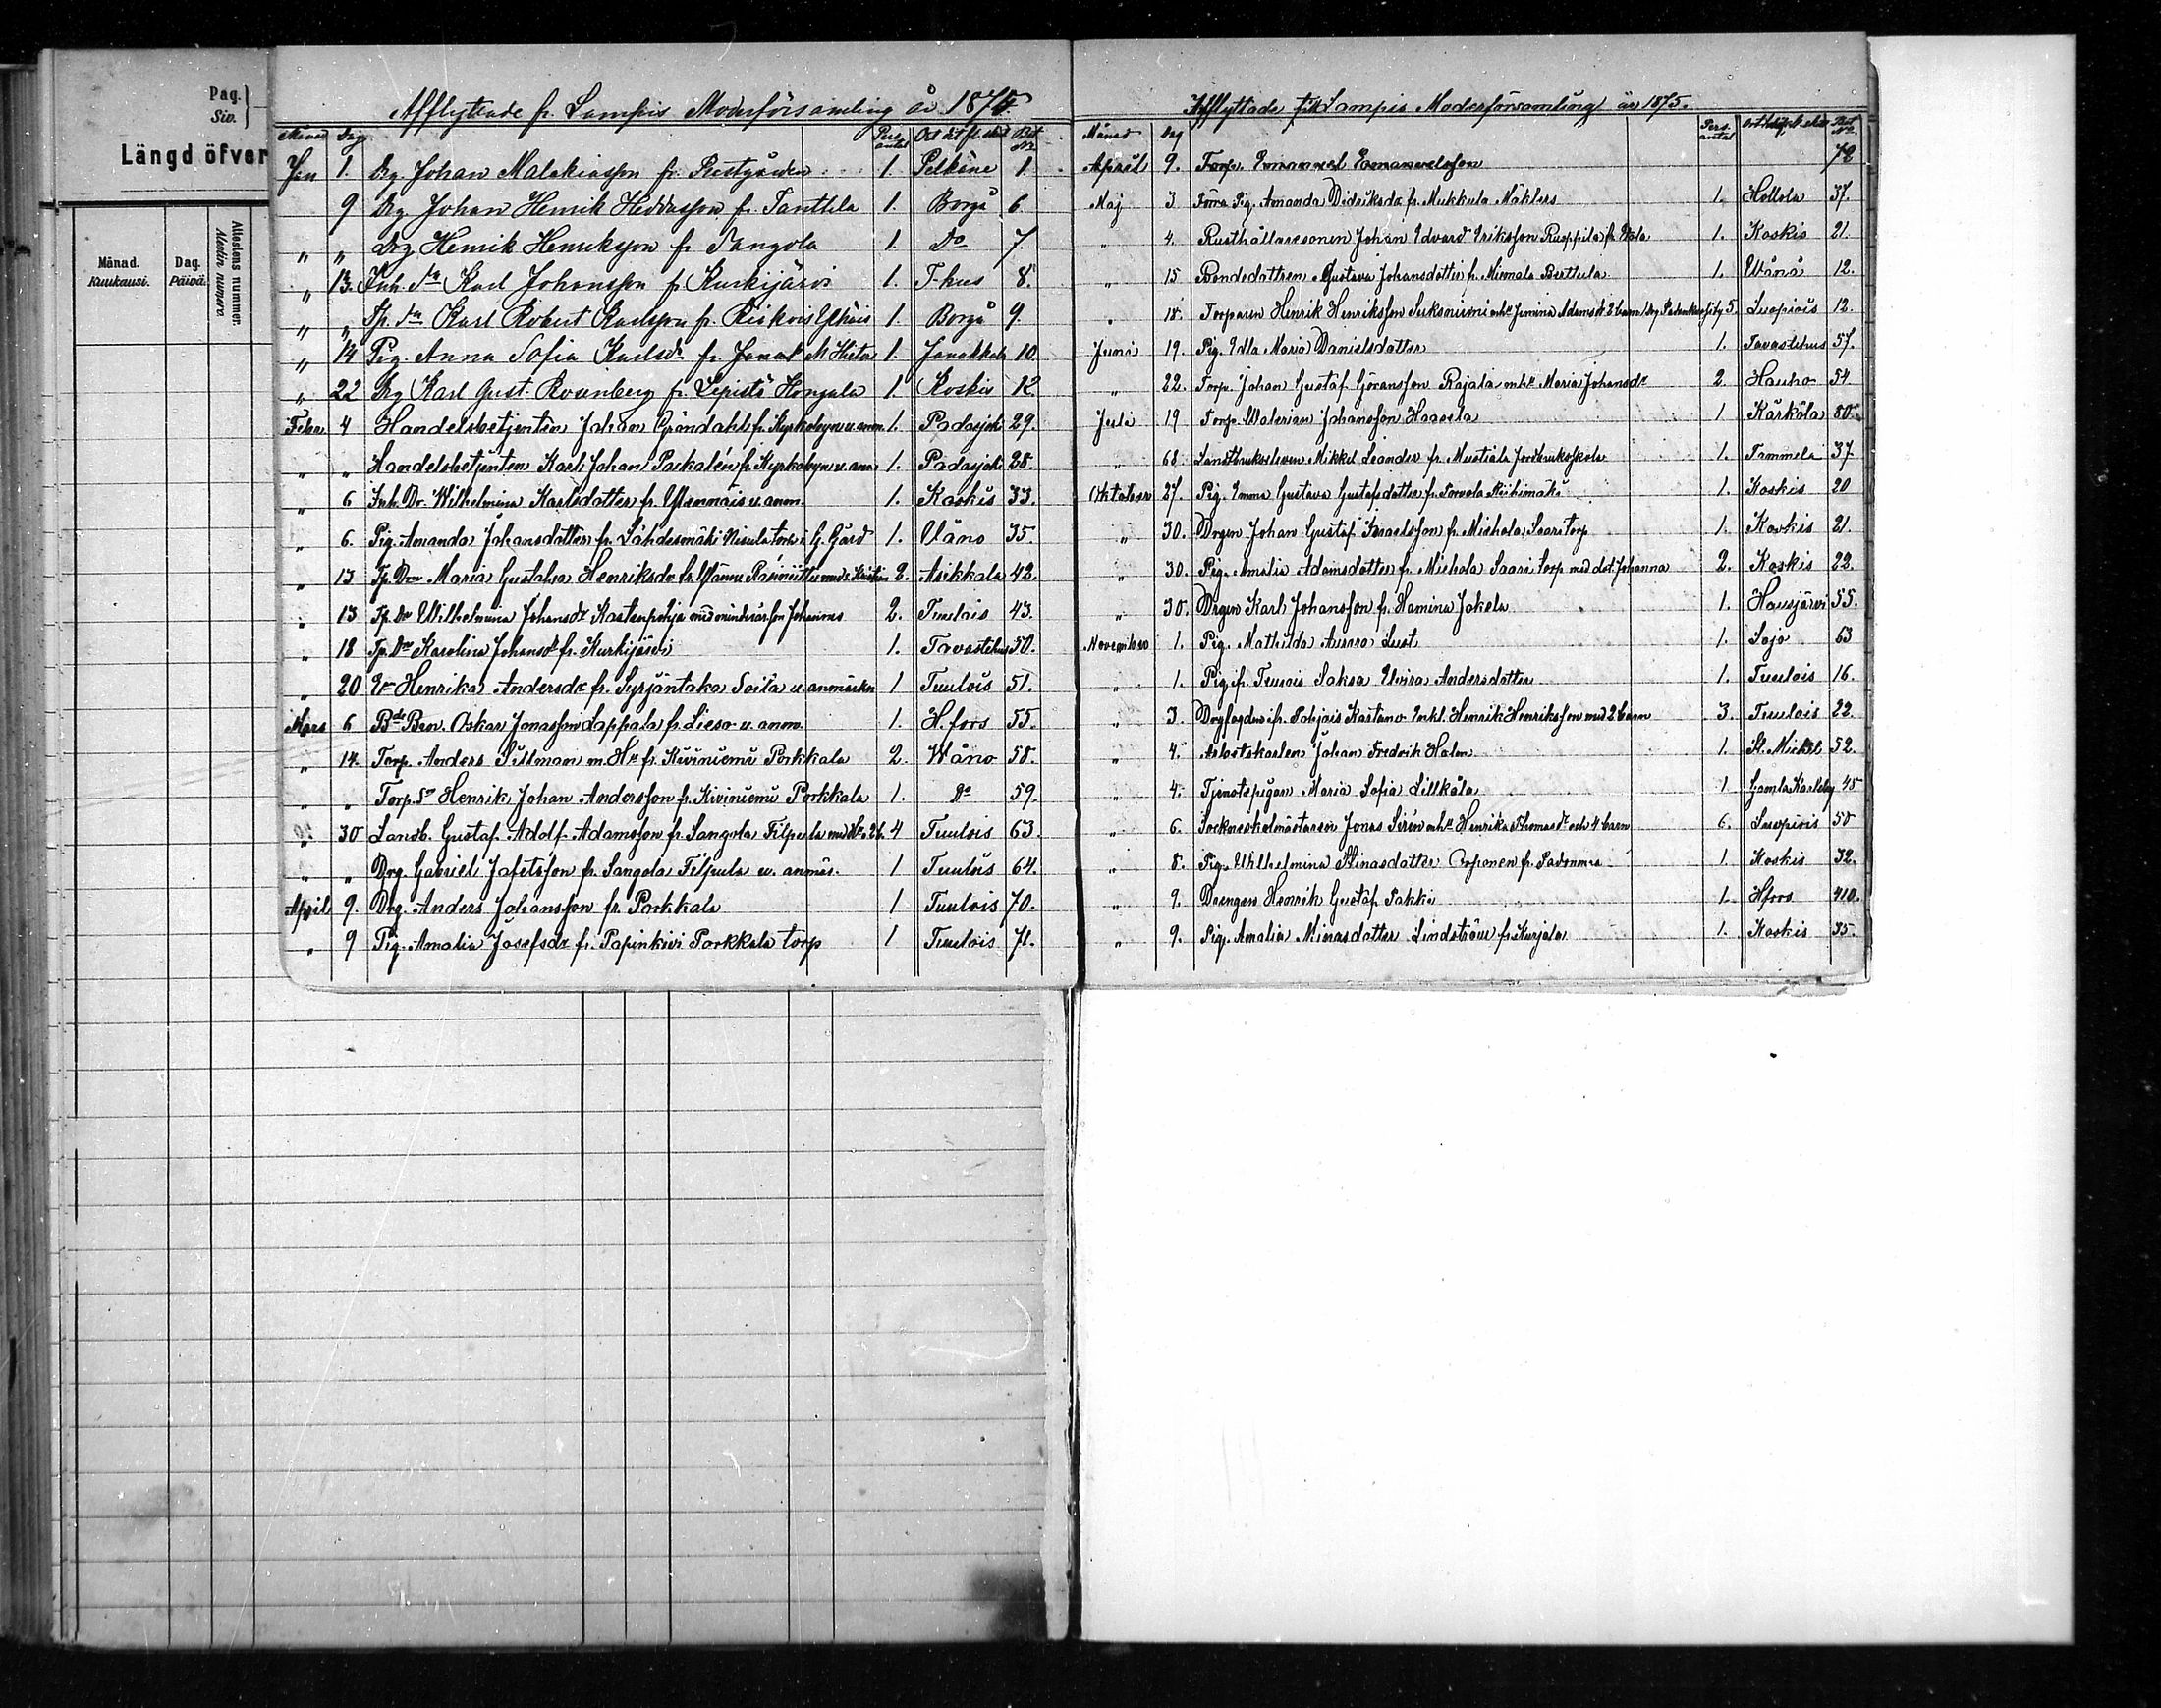 Pag.
Siv.
Längd öfver
Månad.
Kuukausi.
Dag.
Päivä.
Altestens nummer.
Afflyttade fr. Lampis Moderförsamling år 1875.
Månad Dag Pers. antal Bet. No
Jan 1. Drg Johan Malakiasson fr. Prestgården 1. Pelkäne 1.
9 Drg Johan Henrik Heddasson fr. Tanttila 1. Borgå 6.
" " Drg Henrik Henriksson fr. Sangola 1. Do 7.
" 13. Inh. Sn Karl Johansson fr. Kurkijärvi 1. T-hus 8.
" " Tp. Sn Karl Robert Karlsson fr. 1. Borgå 9.
" 14 Pig. Anna Sofia Karlsdr fr. 1. Janakkala 10.
" 22 Drg Karl Gust. Rosenberg fr. Lepistö Hongala 1. Koskis 12
Febr. 4 Handelsbetjenten Johan Gröndahl fr. Kyrkobyn u. anm. 1. Padasjoki 29.
" " Handelsbetjenten Karl Johan fr. Kyrkobyn u. anm. 1. Padasjoki 28.
" 6 Inh. Dr. Wilhelmina Karlsdotter fr. u. anm. 1. Koskis 33.
" 6. Pig. Amanda Johansdotter fr. Lähdesmäki Nisula torp i G. Gård 1. Wåno 35.
" 13 Tp. Dr Maria Gustafva Henriksdr fr. 2. Asikkala 42.
" 13 Tp. Dr Wilhelmina Johansdr med minderår. son Johannes 2. Tuulois 43.
" 18 Tp. Dr Karolina Johansdr fr. Kurkijärvi 1. Tavastehus 50.
" 20 Henrika Andersdr fr. Syrjäntaka Soila u. anmärkn 1 Tuulois 51.
Mars 6 Oskar Jonasson Lappala fr. Lieso u. anm. 1. H.fors 55.
" 14. Torp. Anders Sillman m. Hu fr. Kiviniemi Porkkala 2. Wåno 58.
" " Torp. Sn Henrik Johan Andersson fr. Kiviniemi Porkkala 1. Do 59.
" 30 Gustaf Adolf Adamsson fr. Sangola Filpula 4 Tuulois 63.
" " Drg. Gabriel Jafetsson fr. Sangola Filpula u. anmär. 1 Tuulois 64.
April 9. Drg. Anders Johansson fr. Porkkala 1 Tuulois 70.
" 9 Pig. Amalia Josefsdr fr. Papinkivi Porkkala torp 1 Tuulois 71.
Inflyttade till Lampis Moderförsamling år 1875.
Månad Dag Pers. antal Bet. No
April 9. Torp. Emanuel Emanuelsson 72
Maj 3 Förra Pig. Amanda Didriksdr fr. Mukkula Mäklers 1. Hollola 37.
" 4. Rusthållaresonen Johan Edvard Eriksson 1. Koskis 21.
" 15 Bondedottren Gustava Johansdotter fr. 1. Wånå 12.
" 18. Torparen Henrik Henriksson 5. Luopiois 12.
Juni 19. Pig. Edla Maria Danielsdotter 1. Tavastehus 57.
" 22. Torp. Johan Gustaf Göransson Rajala och Maria Johansdr 2. Hauho 54.
Juli 19 Torp. Walerian Johansson Haavela 1 Kärkölä 80.
" 68 Landtbrukseleven Mikkel Leander fr. Mustiala Jordbruksskola 1. Tammela 37
Oktober 27. Pig. Emma Gustava Gustafsdotter fr. Torvola Riihimäki 1. Koskis 20
" 30. Drgen Johan Gustaf Israelsson fr. Miehola Saaritorp 1. Koskis 21.
" 30. Pig. Amalia Adamsdotter fr. Miehola Saari torp med dot. Johanna 2. Koskis 22.
" 30. Drgen Karl Johansson fr. Hamina Jokela 1. Hausjärvi 55.
November 1. Pig. Mathilda Aurora Lust 1. Lojo 63
" 1. Pig. fr. Saksa Elvira Andersdotter 1. Tuulois 16.
" 3. Drgfogden fr. Pohjois Kastano Enkl. Henrik Henriksson med 2 barn 3. Tuulois 22.
" 4. Arbetskarlen Johan Fredrik Holm 1. St. Mickel 52.
" 4. Tjenstepigan Maria Sofia Lillkåla 1 Gamla Karleby 45
" 6. Sockneskolmästaren Jonas Sirén och Henrika Thomasdr och 4 barn 6. Luopiois 50
" 8. Pig. Wilhelmina Stinasdotter 1. Koskis 32.
" 9. Drengen Henrik Gustaf Pakki 1. Hfors 410.
" 9. Pig. Amalia Minasdotter Lindström fr. Kurjala 1. Koskis 35.